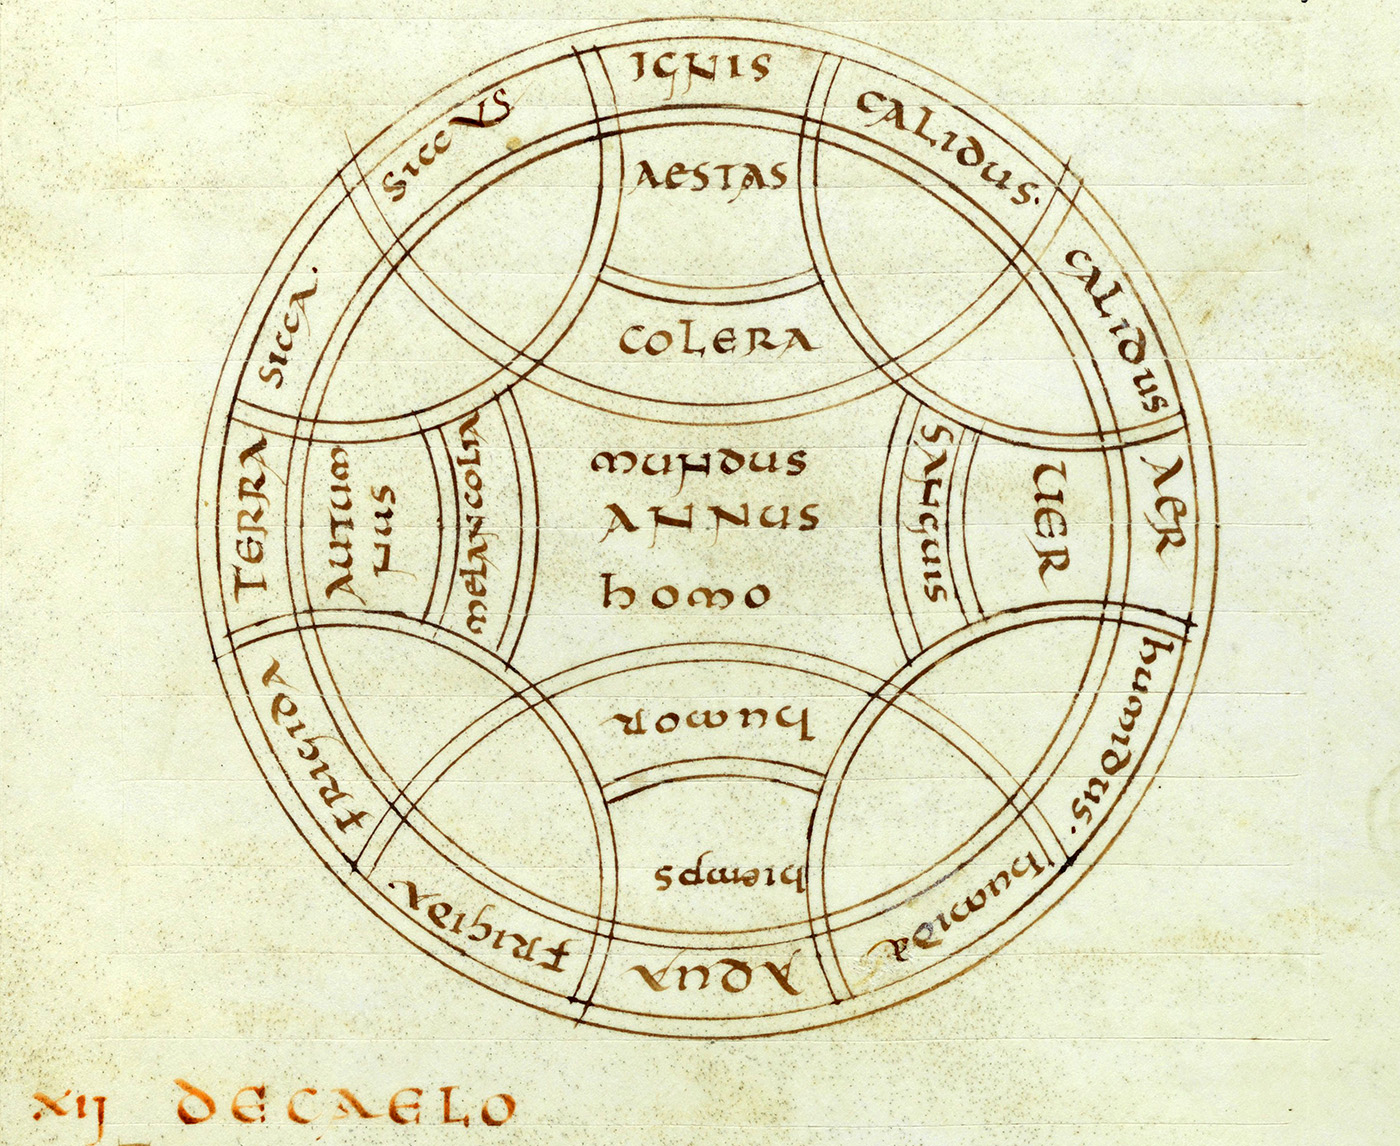 IGNIS
SICCUS
CALIDUS.
AESTAS
COLERA
SICCA.
CALIDUS
TERRA
AUTUM
NUS
MELANCOLIA
MUNDUS
ANNUS
homo
SANGUIS
UER
AER
humor
hiemps
FRIGIDA
humidus.
FRIGIDA.
AQUA
humida
XIJ DECAELO